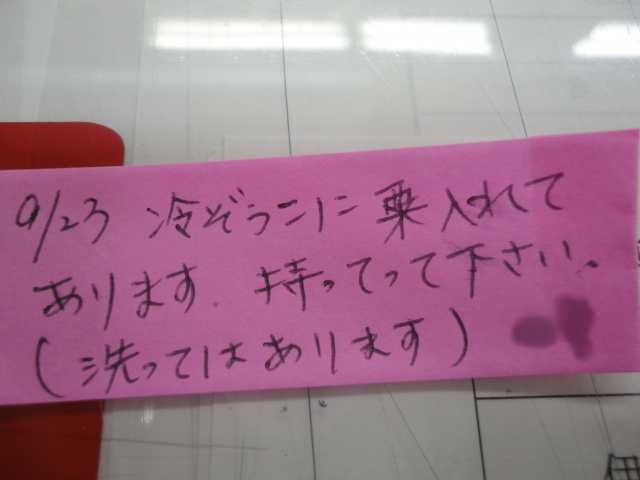 9/23 冷ぞうこに栗入れて
あります. 持ってって下さい。
(洗ってはあります)